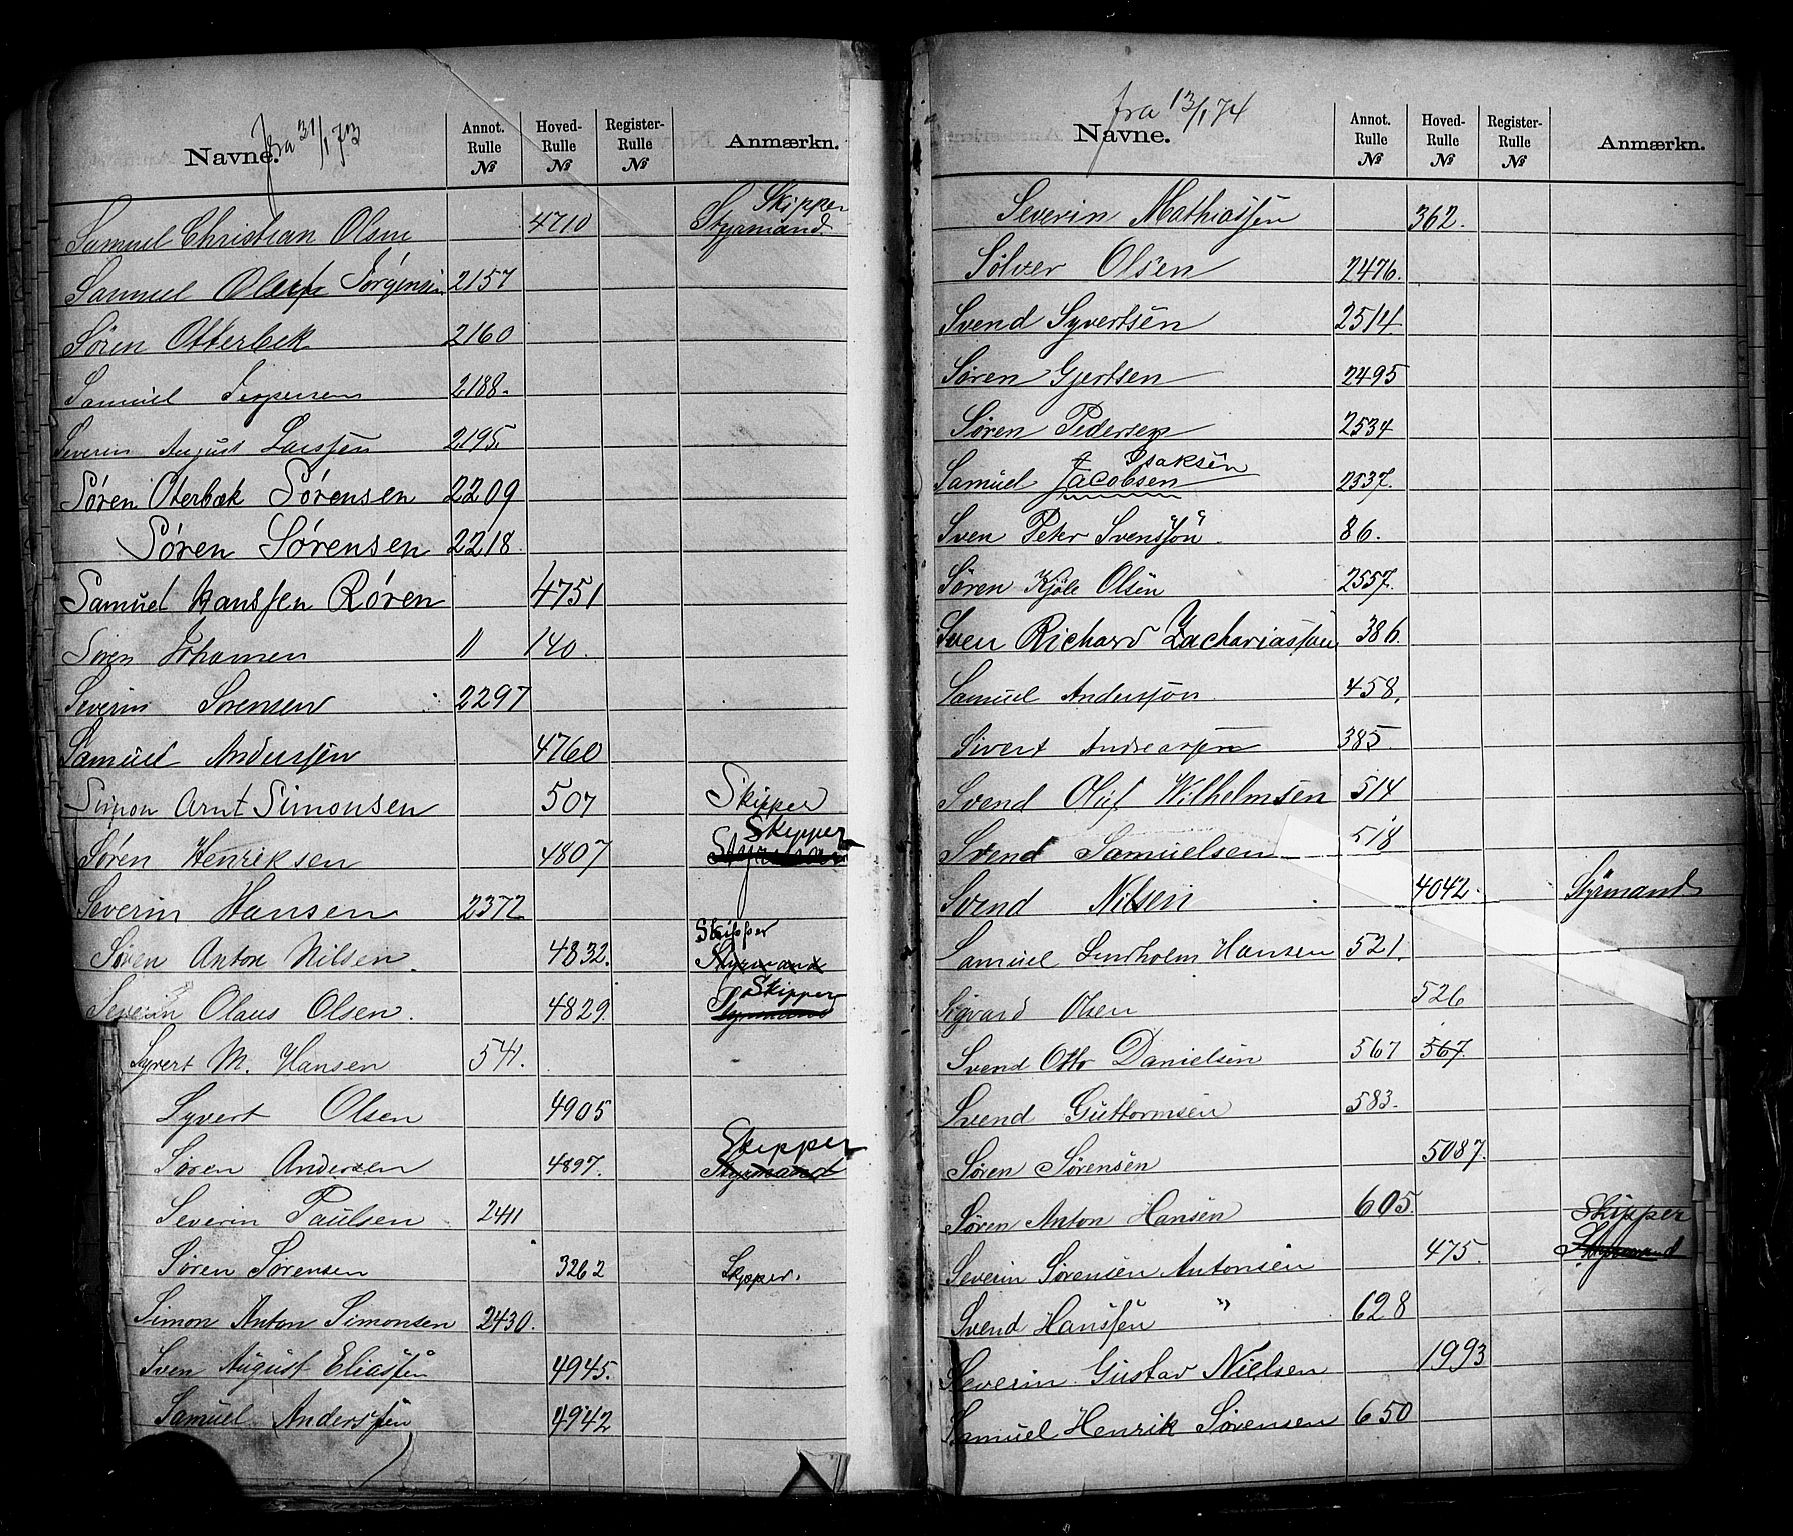 fra 31/1 73
Navne. Annot. Rulle № Hoved- Rulle № Register- Rulle № Anmærkn.
Skipper
Samuel Christian Olsen 4710 Styrmand
Samuel Oluf Jörgensen 2157
Søren Otterbek 2160
Samuel Jespersen 2188.
Severin August Larssen 2195.
Søren Oterbæk Sørensen 2209
Søren Sørensen 2218.
Samuel Hanssen Røren 4751
Søren Johansen 11 140.
Severin Sørensen 2297
Samuel Anderssen 4760
Simon Arnt Simonsen 507 Skipper
Skipper
Søren Henriksen 4807 Styrmand
Severin Hansen 2372
Skipper
Søren Anton Nilsen. 4832. Styrmand
Skipper
Severin Olaus Olsen. 4829. Styrmand
Syvert M. Hansen 541.
Syvert Olsen 4905
Skipper
Søren Andersen 4897. Styrmand
Severin Paulsen 2411
Søren Sørensen 3262 Skipper.
Simon Anton Simonsen 2430.
Sven August Eliassen 4945.
Samuel Anderssen 4942
fra 13/1 74
Navne. Annot. Rulle № Hoved- Rulle № Register- Rulle № Anmærkn.
Severin Mathiassen 362.
Sölver Olsen 2476.
Svend Syvertsen 2514
Søren Gjertsen 2495
Søren Pedersen 2534
Isaksen
Samuel Jacobsen 2537.
Sven Peter Svensson. 86.
Søren Kjöle Olsen 2557.
Sven Richard Zachariasson 386
Samuel Andersson 458.
Sivert Andreassen 385.
Svend Oluf Wilhelmsen 514
Svend Samuelsen 518
Svend Nilsen 4042. Styrmand
Samuel Lindholm Hansen 521.
Sigvard Olsen 526
Svend Otto Danielsen 567 567.
Svend Guttormsen 583.
Søren Sørensen 5087.
Søren Anton Hansen 605.
Skipper
Severin Sørensen Antonsen 475. Styrmand
Svend Hanssen " 628
Severin Gustav Nielsen 1993
Samuel Henrik Sørensen 650